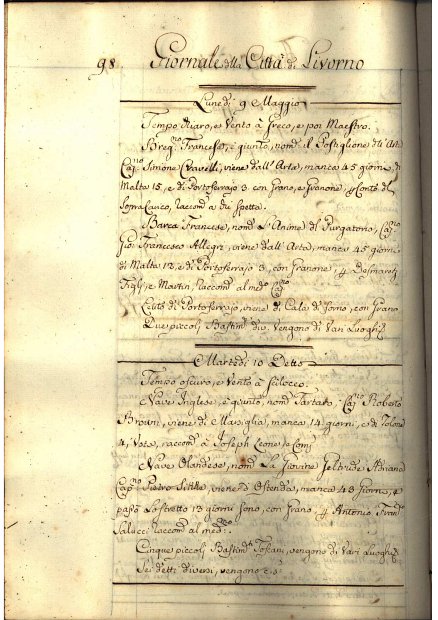 98. Giornale della Città di Livorno
Lunedì 9 Maggio
Tempo chiaro, e Vento à Greco, e poi Maestro.
Brig.no Francese, è giunto, nom.to il Postiglione d'Arta
Cap.no Simone Ravelli, viene dall'Arta, manca 45 giorni, di
Malta 15, e di Portoferrajo 3 con Grano, e Granone, p Conto del
Sopracarico, raccom. a chi spetta.
Barca Francese, nom. L'Anime del Purgatorio, Cap.no
Gio: Francesco Allegri, viene dall'Arta, manca 45 giorni
di Malta 12, e di Portoferrajo 3, con Granone, p
Figlj, e Martin, raccom. al med.o Cap.no
Leuto di Portoferrajo, viene di Cala di Forno, con Grano
Due piccoli Bastim.ti div. vengono di Vari Luoghi
Martedì 10 Detto
Tempo oscuro, e Vento à Scilocco.
Nave Inglese, è giunta, nom. Tartar, Cap.no Roberto
Broun, viene di Marsiglia, manca 14 giorni, e di Tolone
4, Vota, raccom. à Joseph Leone, e Com.
Nave Olandese, nom. La Giovine Geltrude Adriana
Cap.no Pietro viene d'Ostenda, manca 43 Giorni, e
passò Lo stretto 13 giorni sono, con Grano, p Antonio, e Fran.
Salucci raccom. al med.o
Cinque piccoli Bastim.ti Toscani, vengono di Vari Luoghi
Sei detti diversi, vengono c.s.